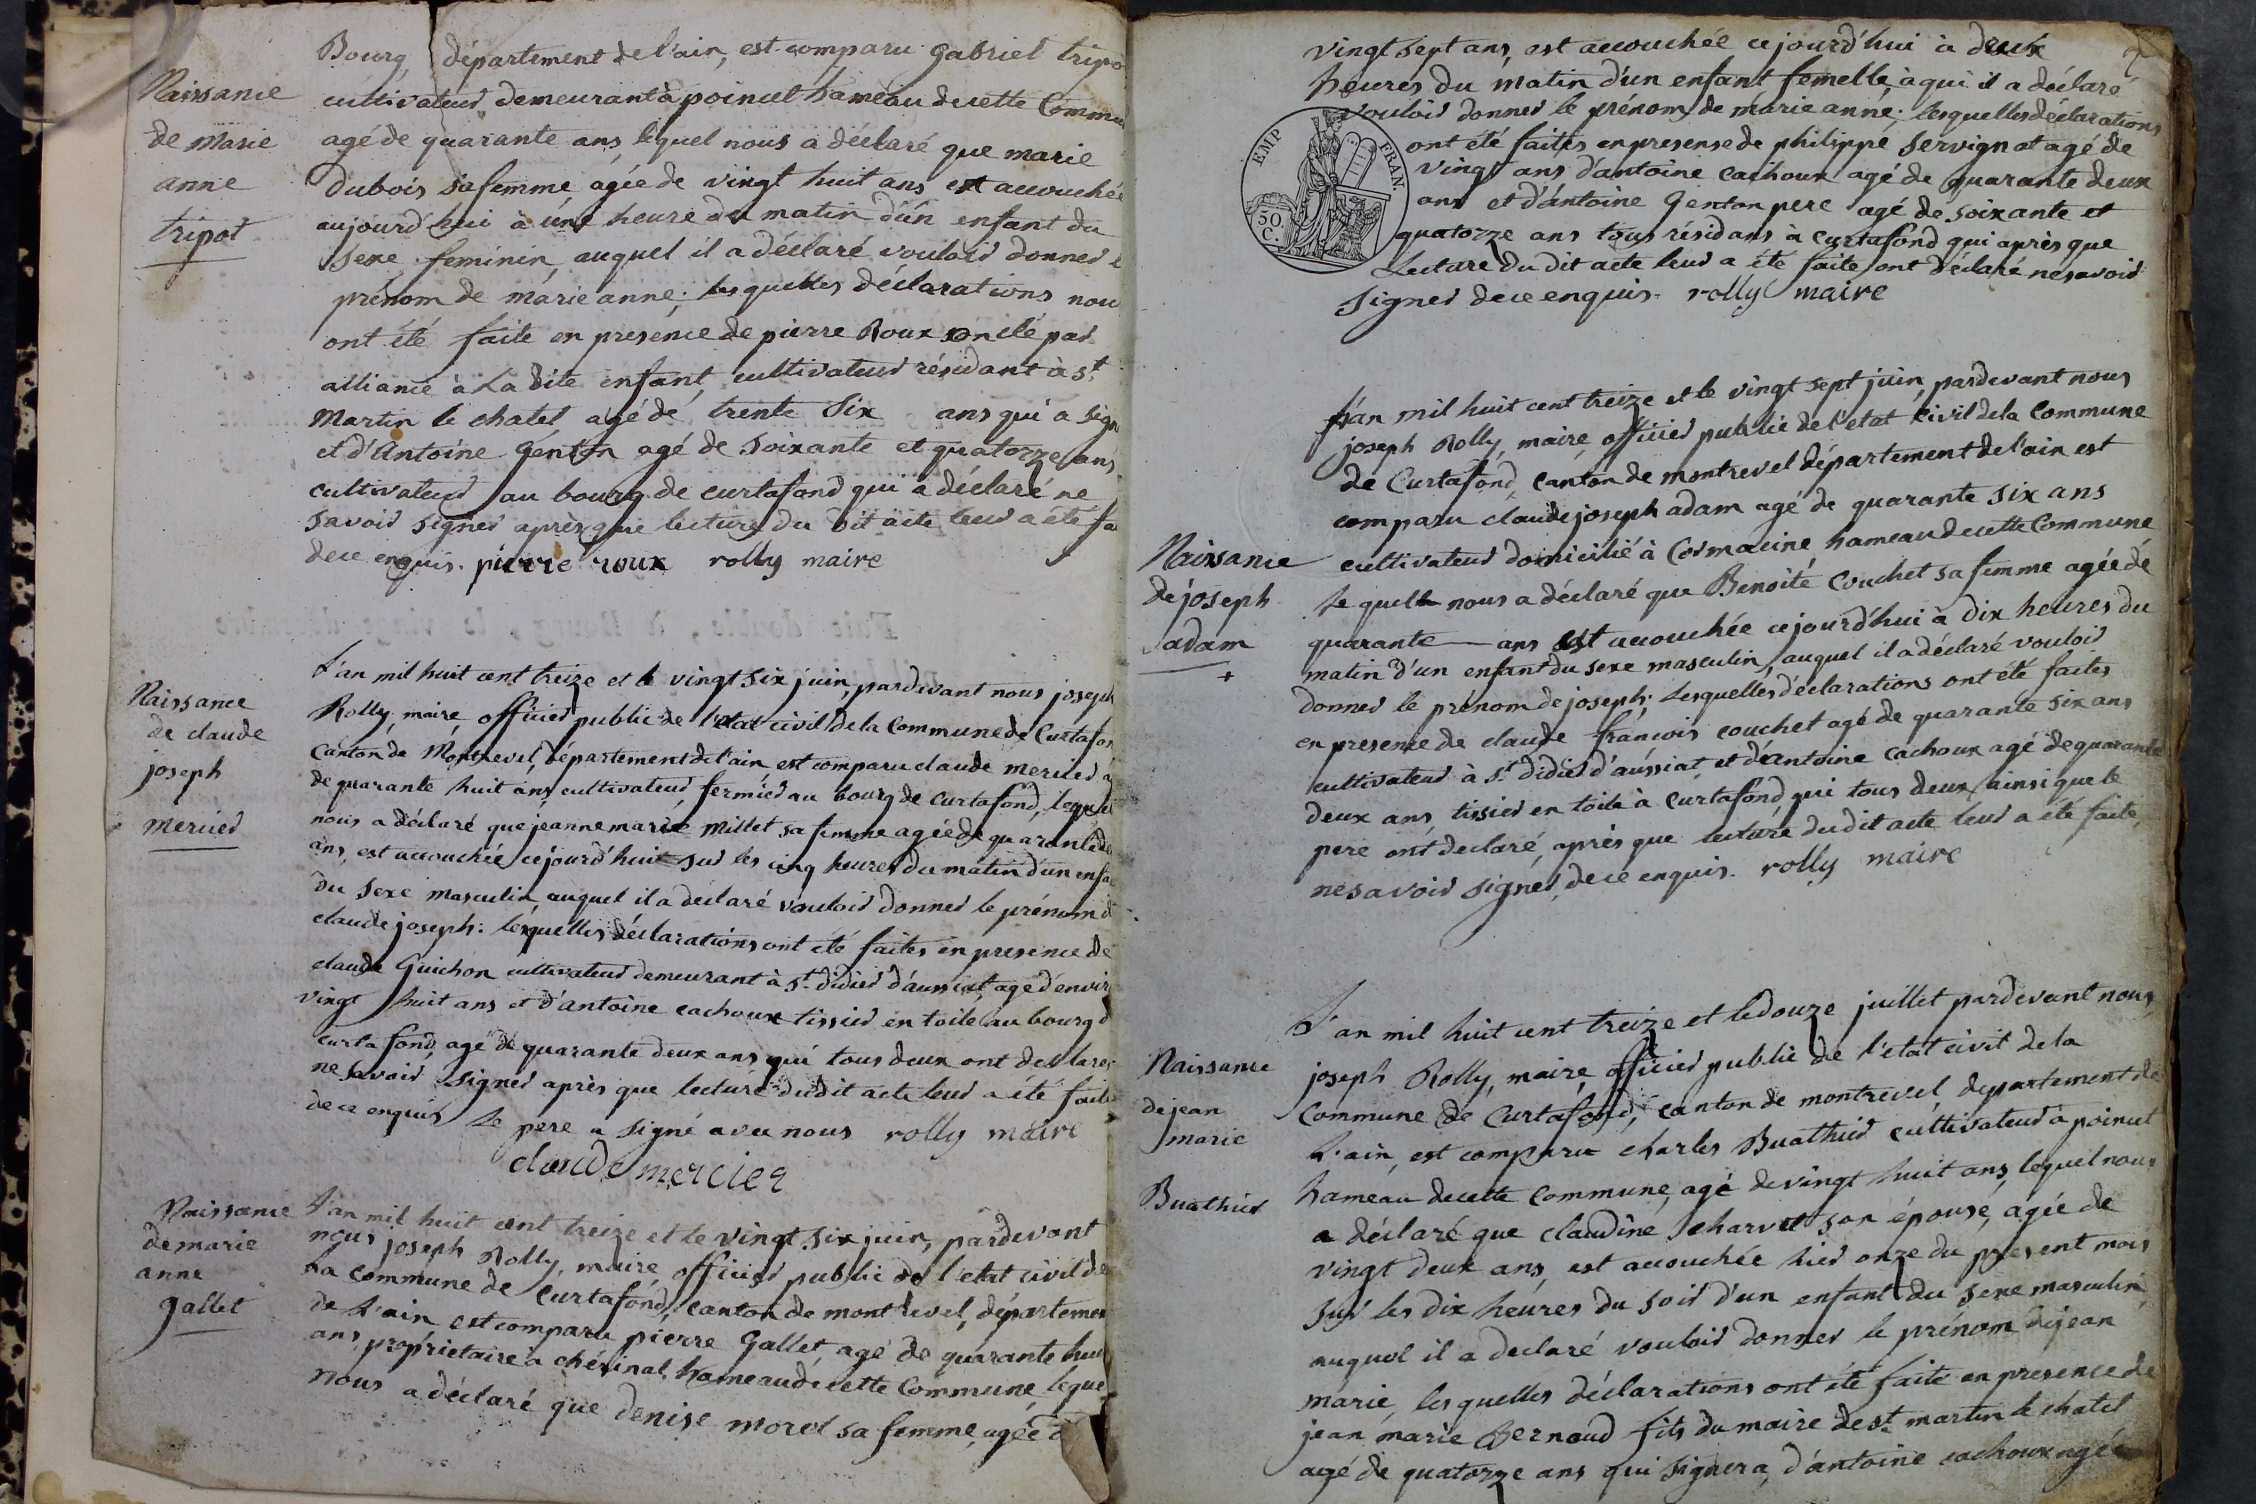 Bourg, département de l'ain, est comparu gabriel tripo
Naissance
de marie
anne
tripot
cultivateur demeurant à poincet hameau de cette Commu
agé de quarante ans, lequel nous a déclaré que marie
dubois sa femme agée de vingt huit ans est accouchée
aujourd'hui à une heure du matin d'un enfant du
sexe feminin, auquel il a déclaré vouloir donner l
prénom de marie anne; lesquelles déclarations nou
ont été faite en presence de pierre Roux oncle par
alliance à La dite enfant, cultivateur résidant à St
Martin le chatel agé de trente six ans qui a sign
et d'Antoine genton agé de soixante et quatorze ans
cultivateur au bourg de curtafond qui a déclaré ne
savoir signer après que lecture du dit acte leur a été fa
de ce enquis. pierre roux rolly maire
Naissance
de claude
joseph
mercier
L'an mil huit cent treize et le vingt six juin, pardevant nous joseph
Rolly, maire officier public de l'etat civil de la Commune de Curtafon
Canton de Montrevel, département de l'ain est comparu claude mercier a
de quarante huit ans, cultivateur, fermier au bourg de curtafond, lequel
nous a déclaré que jeanne marie Millet sa femme agée de quarante
ans, est accouchée cejourd'hui sur les cinq heures du matin d'un enfa
du sexe masculin, auquel il a déclaré vouloir donner le prénom d
claude joseph: lesquelles déclarations ont été faites en presence de
claude Guichon cultivateur demeurant à St didier d'aussiat, agé d'envir
vingt huit ans et d'antoine cachoux tissier en toile au bourg d
curtafond agé de quarante deux ans qui tous deux ont declarer
ne savoir signer après que lecture dudit acte leur a été faite
de ce enquis Le pere a signé avec nous rolly maire
claude mercier
Naissance
de marie
anne
gallet
L'an mil huit cent treize et le vingt six juin, pardevant
nous joseph Rolly, maire officier public de l'etat civil de
La commune de Curtafond, canton de montrevel, départemen
de L'ain est comparu pierre Gallet agé de quarante hui
ans, propriétaire à chévinal, hameau de cette Commune, leque
nous a déclaré que denise morel sa femme, agée
vingt sept ans, est accouchée cejourd'hui à deux
heures du matin d'un enfant femelle, à qui il a déclaré
vouloir donner le prénom de marie anne; lesquelles déclarations
ont été faites en presense de philippe servignat agé de
vingt ans d'antoine cachoux agé de quarante deux
ans et d'antoine Genton pere agé de soixante et
quatorze ans tous résidans à curtafond qui après que
Lecture du dit acte leur a été faite, ont déclaré ne savoir
signer de ce enquis. rolly maire
EMP FRAN.
50
C.
L'an mil huit cent treize et le vingt sept juin, pardevant nous
joseph Rolly, maire, officier public de l'etat civil de la Commune
de Curtafond, canton de montrevel département de l'ain est
comparu claude joseph adam agé de quarante six ans
Naissance
de joseph
adam
+
cultivateur domicilié à Cormacine hameau de cette Commune
Lequel nous a déclaré que Benoite Couchet sa femme agée de
quarante ans est accouchée cejourd'hui à dix heures du
matin d'un enfant du sexe masculin, auquel il a déclaré vouloir
donner le prénom de joseph; Lesquelles déclarations ont été faites
en presence de claude francois couchet agé de quarante six ans
cultivateur à St didier d'aussiat et d'antoine cachoux agé de quarante
deux ans, tissier en toile à Curtafond, qui tous deux, ainsi que le
pere ont declaré, après que lecture du dit acte leur a été faite,
ne savoir signer, de ce enquis. rolly maire
L'an mil huit cent treize et le douze juillet pardevant nous
Naissance
de jean
marie
Buathier
joseph Rolly, maire officier public de l'etat civil de la
Commune de Curtafond, canton de montrevel, departement de
L'ain, est comparu charles Buathier cultivateur à poincet
hameau de cette Commune, agé de vingt huit ans, lequel nous
a déclaré que claudine charvet son épouse, agée de
vingt deux ans, est accouchée hier onze du present mois
sur les dix heures du soir d'un enfant du sexe masculin,
auquel il a declaré vouloir donner le prénom de jean
marie, lesquelles déclarations ont été faite en presence de
jean marie Bernoud fils du maire de St martin le chatel
agé de quatorze ans qui signera, d'antoine cachoux agé